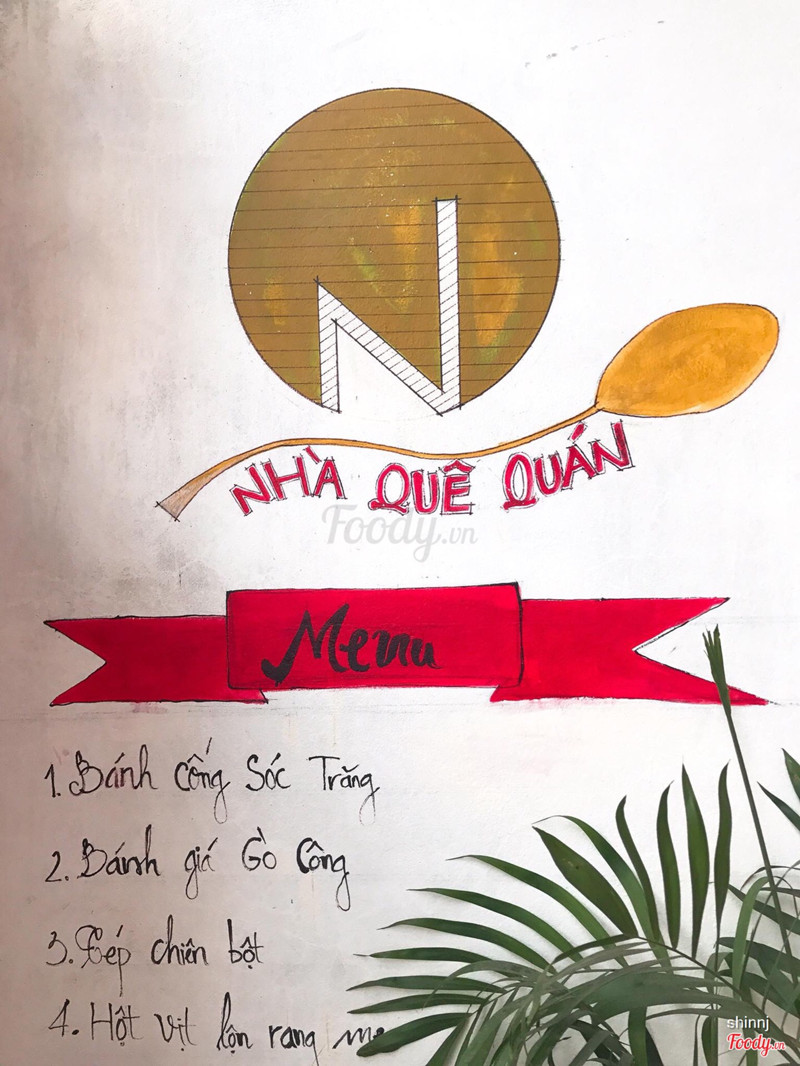 N
NHÀ QUÊ QUÁN
Foody.vn
Menu
1. Bánh Cống Sóc Trăng
2. Bánh giá Gò Công
3. Tép chiên bột
4. Hột vịt lộn rang me
shinnj
Foody.vn